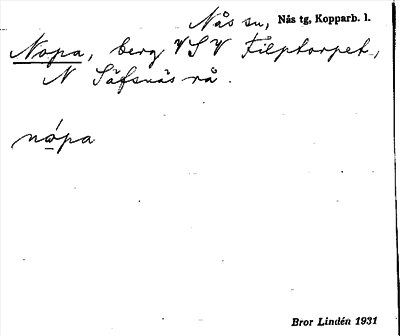 Nås sn, Nås tg, Kopparb. l.
Nopa, berg VSV Filptorpet,
N Säfsnäs rå.
nópa
Bror Lindén 1931